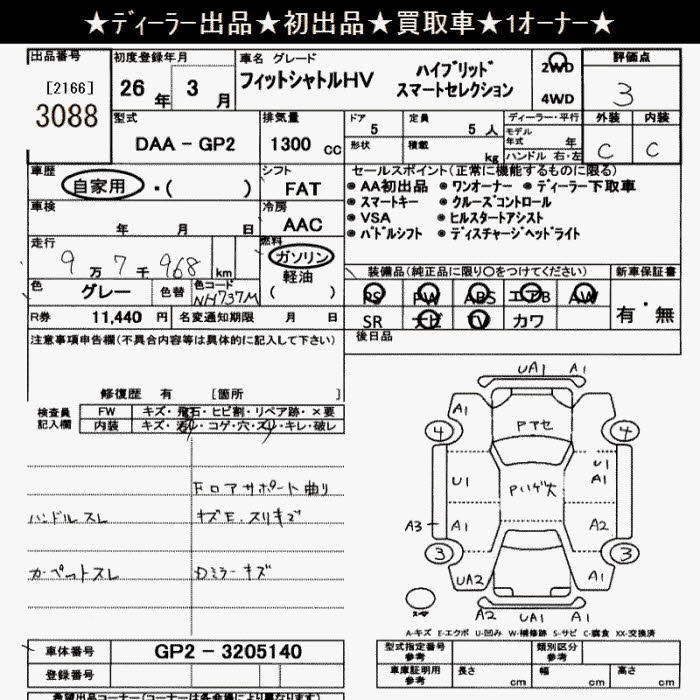 ★ディーラー出品★初出品★買取車★1オーナー★
出品番号 初度登録年月 車名 グレード 評価点
[2166] 26年 3月 フィットシャトルHV ハイブリッド スマートセレクション 2WD 4WD 3
3088
型式 排気量 ドア 定員 ディーラー・平行 外装 内装
DAA - GP2 1300 cc 5 5人 モデル年式 年 C C
形状 積載 kg ハンドル 右・左
車歴 シフト セールスポイント(正常に機能するものに限る)
自家用・( ) FAT
◉AA初出品 ◉ワンオーナー ◉ディーラー下取車
車検 冷房 ◉スマートキー ◉クルーズコントロール
年 月 日 AAC ◉VSA ◉ヒルスタートアシスト
◉パドルシフト ◉ディスチャージヘッドライト
走行 燃料
9万7千968 km ガソリン 軽油 ( )
装備品(純正品に限り○をつけてください) 新車保証書
色 グレー 色替 色コード NH737M
PS PW ABS エアB AW 有・無
R券 11,440 円 名変通知期限 月 日
SR ナビ TV カワ
注意事項申告欄(不具合内容等は具体的に記入して下さい) 後日品
修復歴 有 [箇所 ]
検査員記入欄 FW キズ・飛石・ヒビ割・リペア跡・×要
内装 キズ・汚レ・コゲ・穴・スレ・キレ・破レ
Fロアサポート曲り
ハンドルスレ キズE、スリキズ
カーペットスレ Dミラーキズ
UA1 A1
A1
4 Pアセ 4
U1 Pハゲ大 U1 A1
A3 A1 A2
3 3
UA2 A1
A2 UA1 A1
A-キズ E-エクボ U-凹み W-補修跡 S-サビ C-腐食 XX-交換済
車体番号 GP2 - 3205140
型式指定番号 参考 類別区分 参考
登録番号
車庫証明用 参考 長さ cm 幅 cm 高さ cm
希望出品コーナー(コーナーは各会場により異なります)